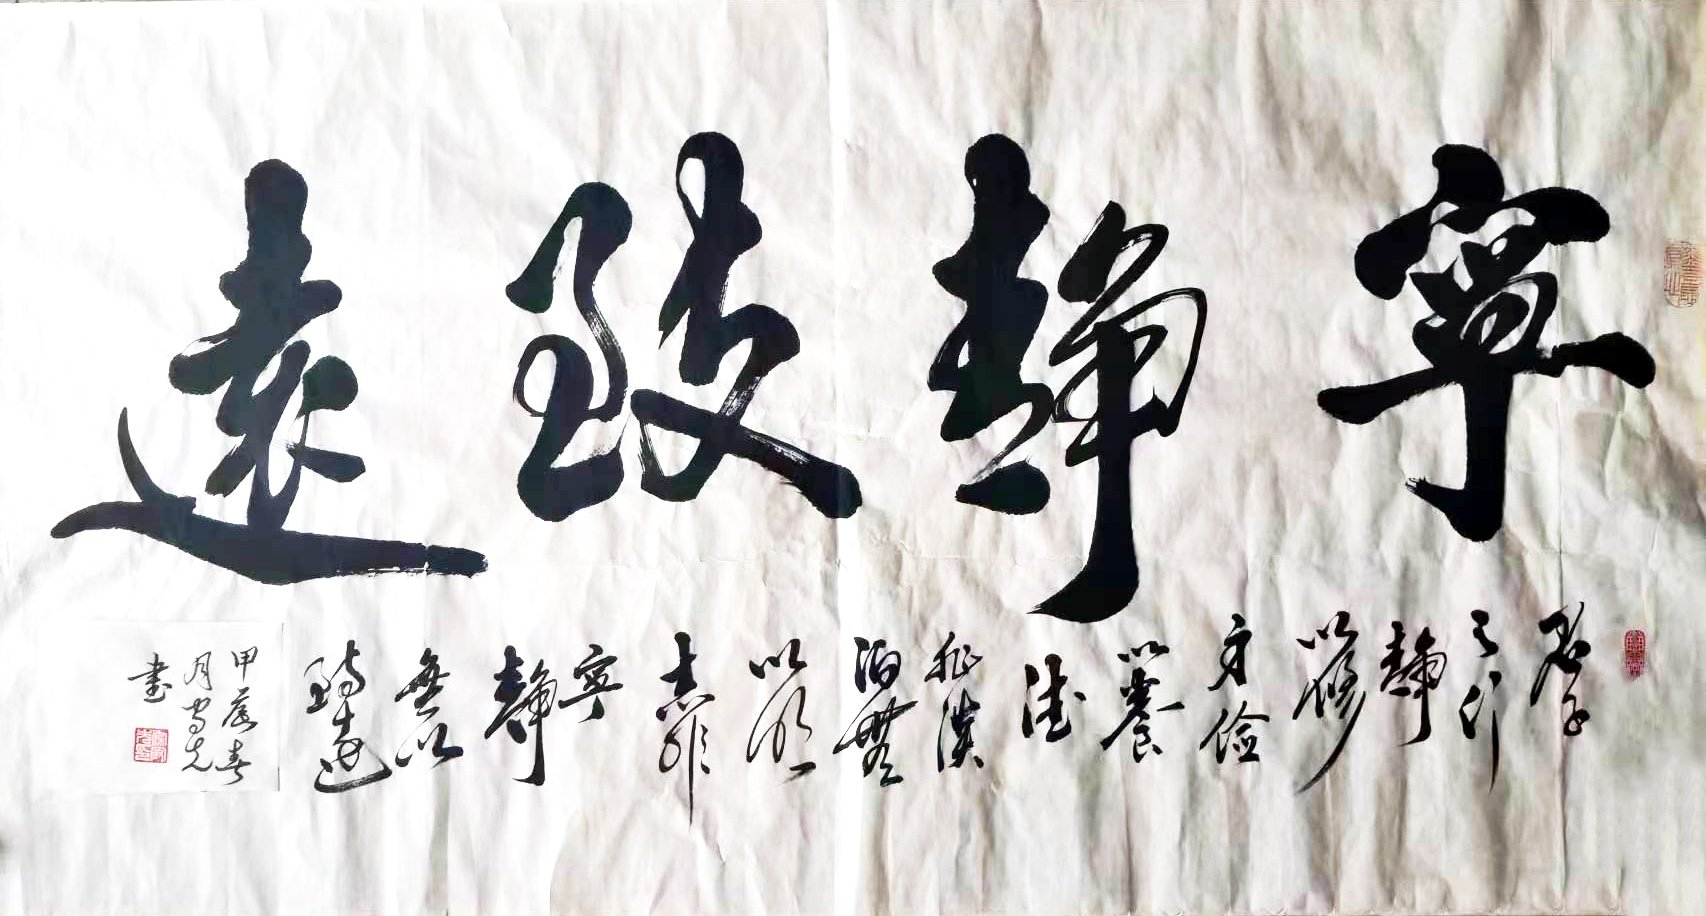 寧靜致遠
君子
之行
靜
以修
身儉
以養
德
非淡
泊無
以明
志非
寧
靜
無以
致遠
甲辰春
月
書